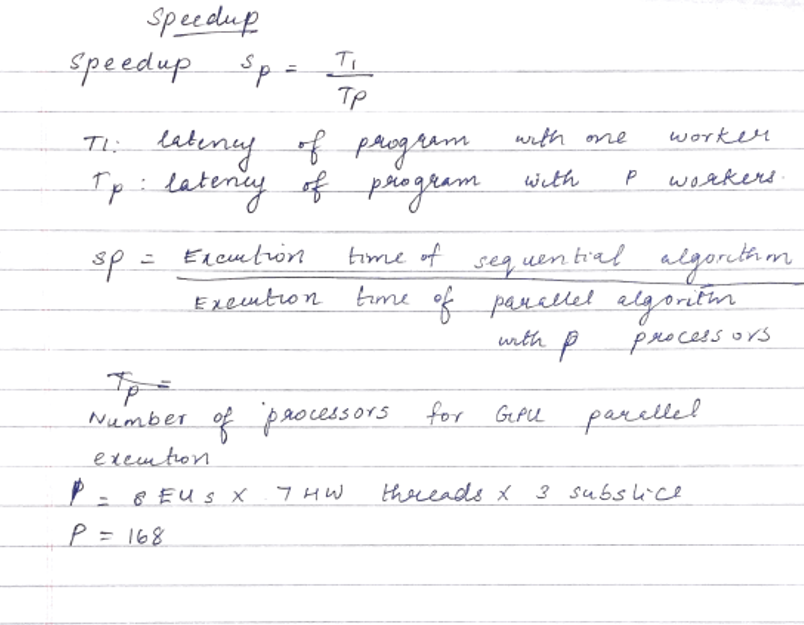 Speedup
Speedup Sp = T1
Tp
T1: latency of program with one worker
Tp : latency of program with P workers.
Sp = Execution time of sequential algorithm
Execution time of parallel algorithm
with p processors
Tp =
Number of processors for GPU parallel
execution
P = 8 EUs X 7 HW threads X 3 subslice
P = 168